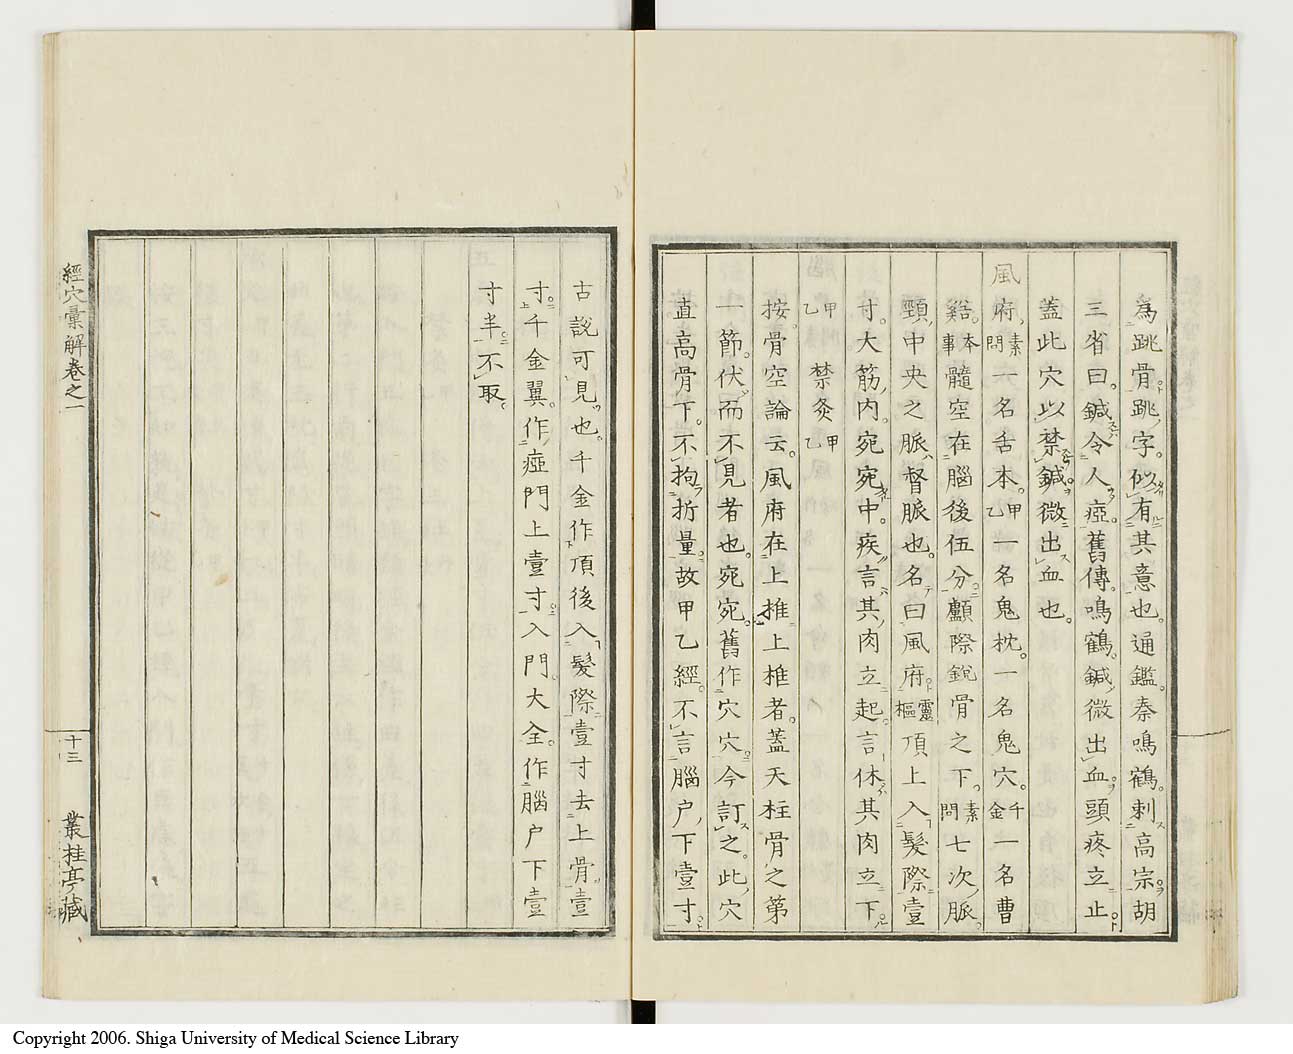 為跳骨跳字似有其意也通鑑秦鳴鶴刺高宗胡
三省曰鍼令人瘂舊傳鳴鶴鍼微出血頭疼立止
蓋此穴以禁鍼微出血也
風府素問一名舌本甲乙一名鬼枕一名鬼穴千金一名曹
谿本事髓空在腦後伍分顱際銳骨之下素問七次脈
頸中央之脈督脈也名曰風府靈樞項上入髮際壹
寸大筋內宛宛中疾言其肉立起言休其肉立下
甲乙禁灸甲乙
按骨空論云風府在上椎上椎者蓋天柱骨之第
一節伏而不見者也宛宛舊作穴穴今訂之此穴
直高骨下不拘折量故甲乙經不言腦户下壹寸
古說可見也千金作項後入髮際壹寸去上骨壹
寸千金翼作瘂門上壹寸入門大全作腦户下壹
寸半不取
經穴彙解卷之一
十三
叢桂亭藏
Copyright 2006. Shiga University of Medical Science Library